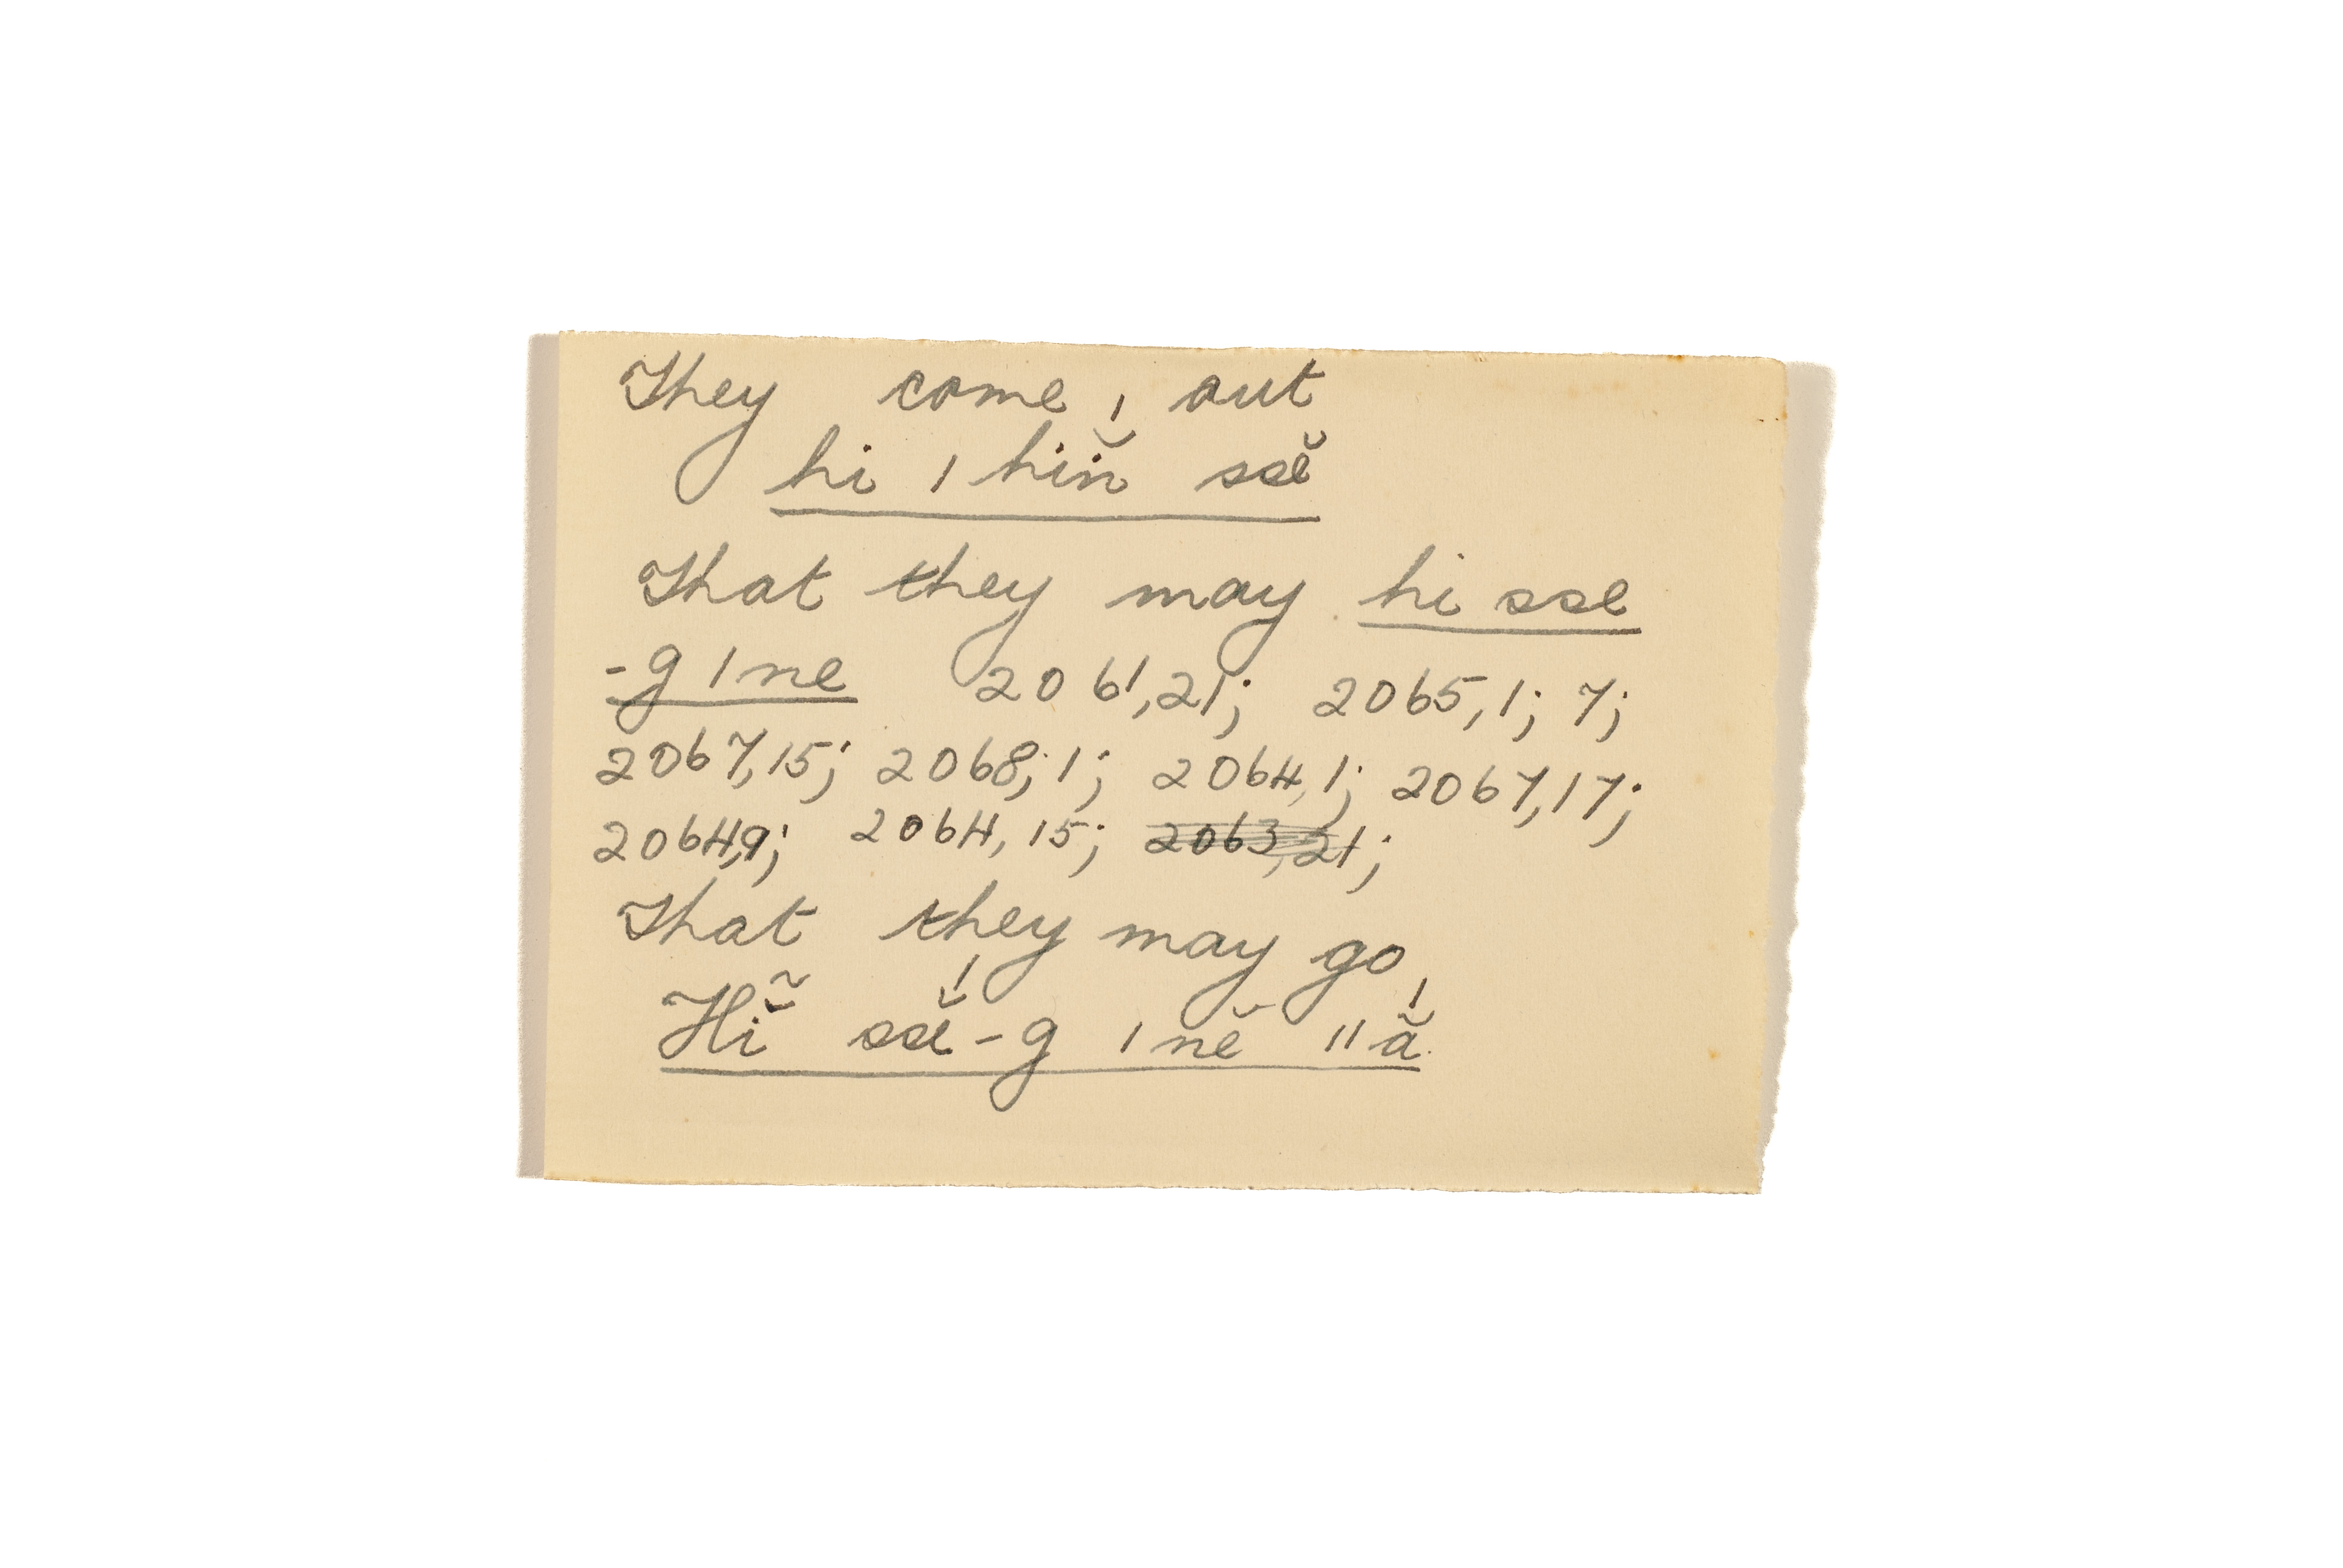 They come out
hi ǀ hĭń ssĕ
That they may hi sse
-g ǀ ne 2061,21; 2065,1; 7;
2067,15; 2068,1; 2064,1; 2067,17;
2064,9; 2064,15; 2063,21;
That they may go
Hĭ̃ ssĕ́-g ǀ nĕ ǁ ắ.